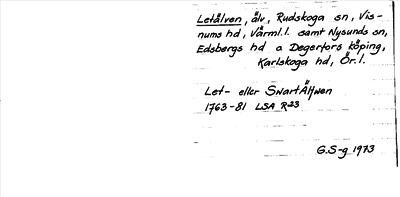 Letälven, älv, Rudskoga sn, Vis-
nums hd, Värml.l. samt Nysunds sn,
Edsbergs hd o Degerfors köping,
Karlskoga hd, Ör.l.
Let- eller SwartÄlfwen
1763-81 LSA R23
G.S-g 1973